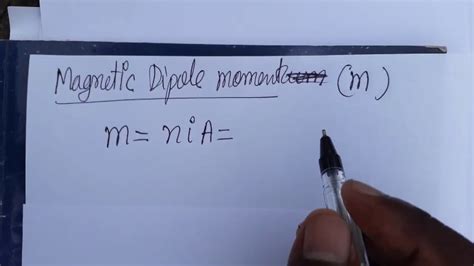 Magnetic Dipole moment (m)
m = niA =